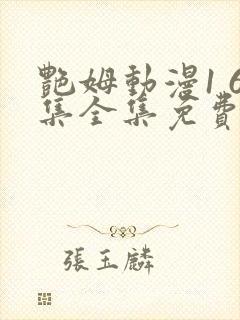 艷姆動漫1 6
集全集免費
張玉麟